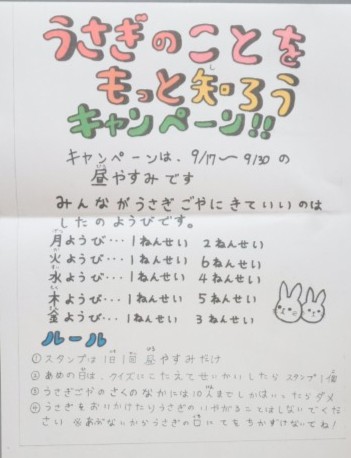 うさぎのことを
もっと知ろう
キャンペーン!!
キャンペーンは、9/17〜9/30の
昼やすみです
みんながうさぎごやにきていいのは
したのようびです。
月ようび…1ねんせい 2ねんせい
火ようび…1ねんせい 6ねんせい
水ようび…1ねんせい 4ねんせい
木ようび…1ねんせい 5ねんせい
金ようび…1ねんせい 3ねんせい
ルール
①スタンプは1日1回昼やすみだけ
②あめの日は、クイズにこたえてせいかいしたらスタンプ1個
③うさぎごやのさくのなかには10人までしかはいったらダメ
④うさぎをおいかけたりうさぎのいやがることはしないでくだ
さい ※あぶないからうさぎの口にてをちかずけないでね!